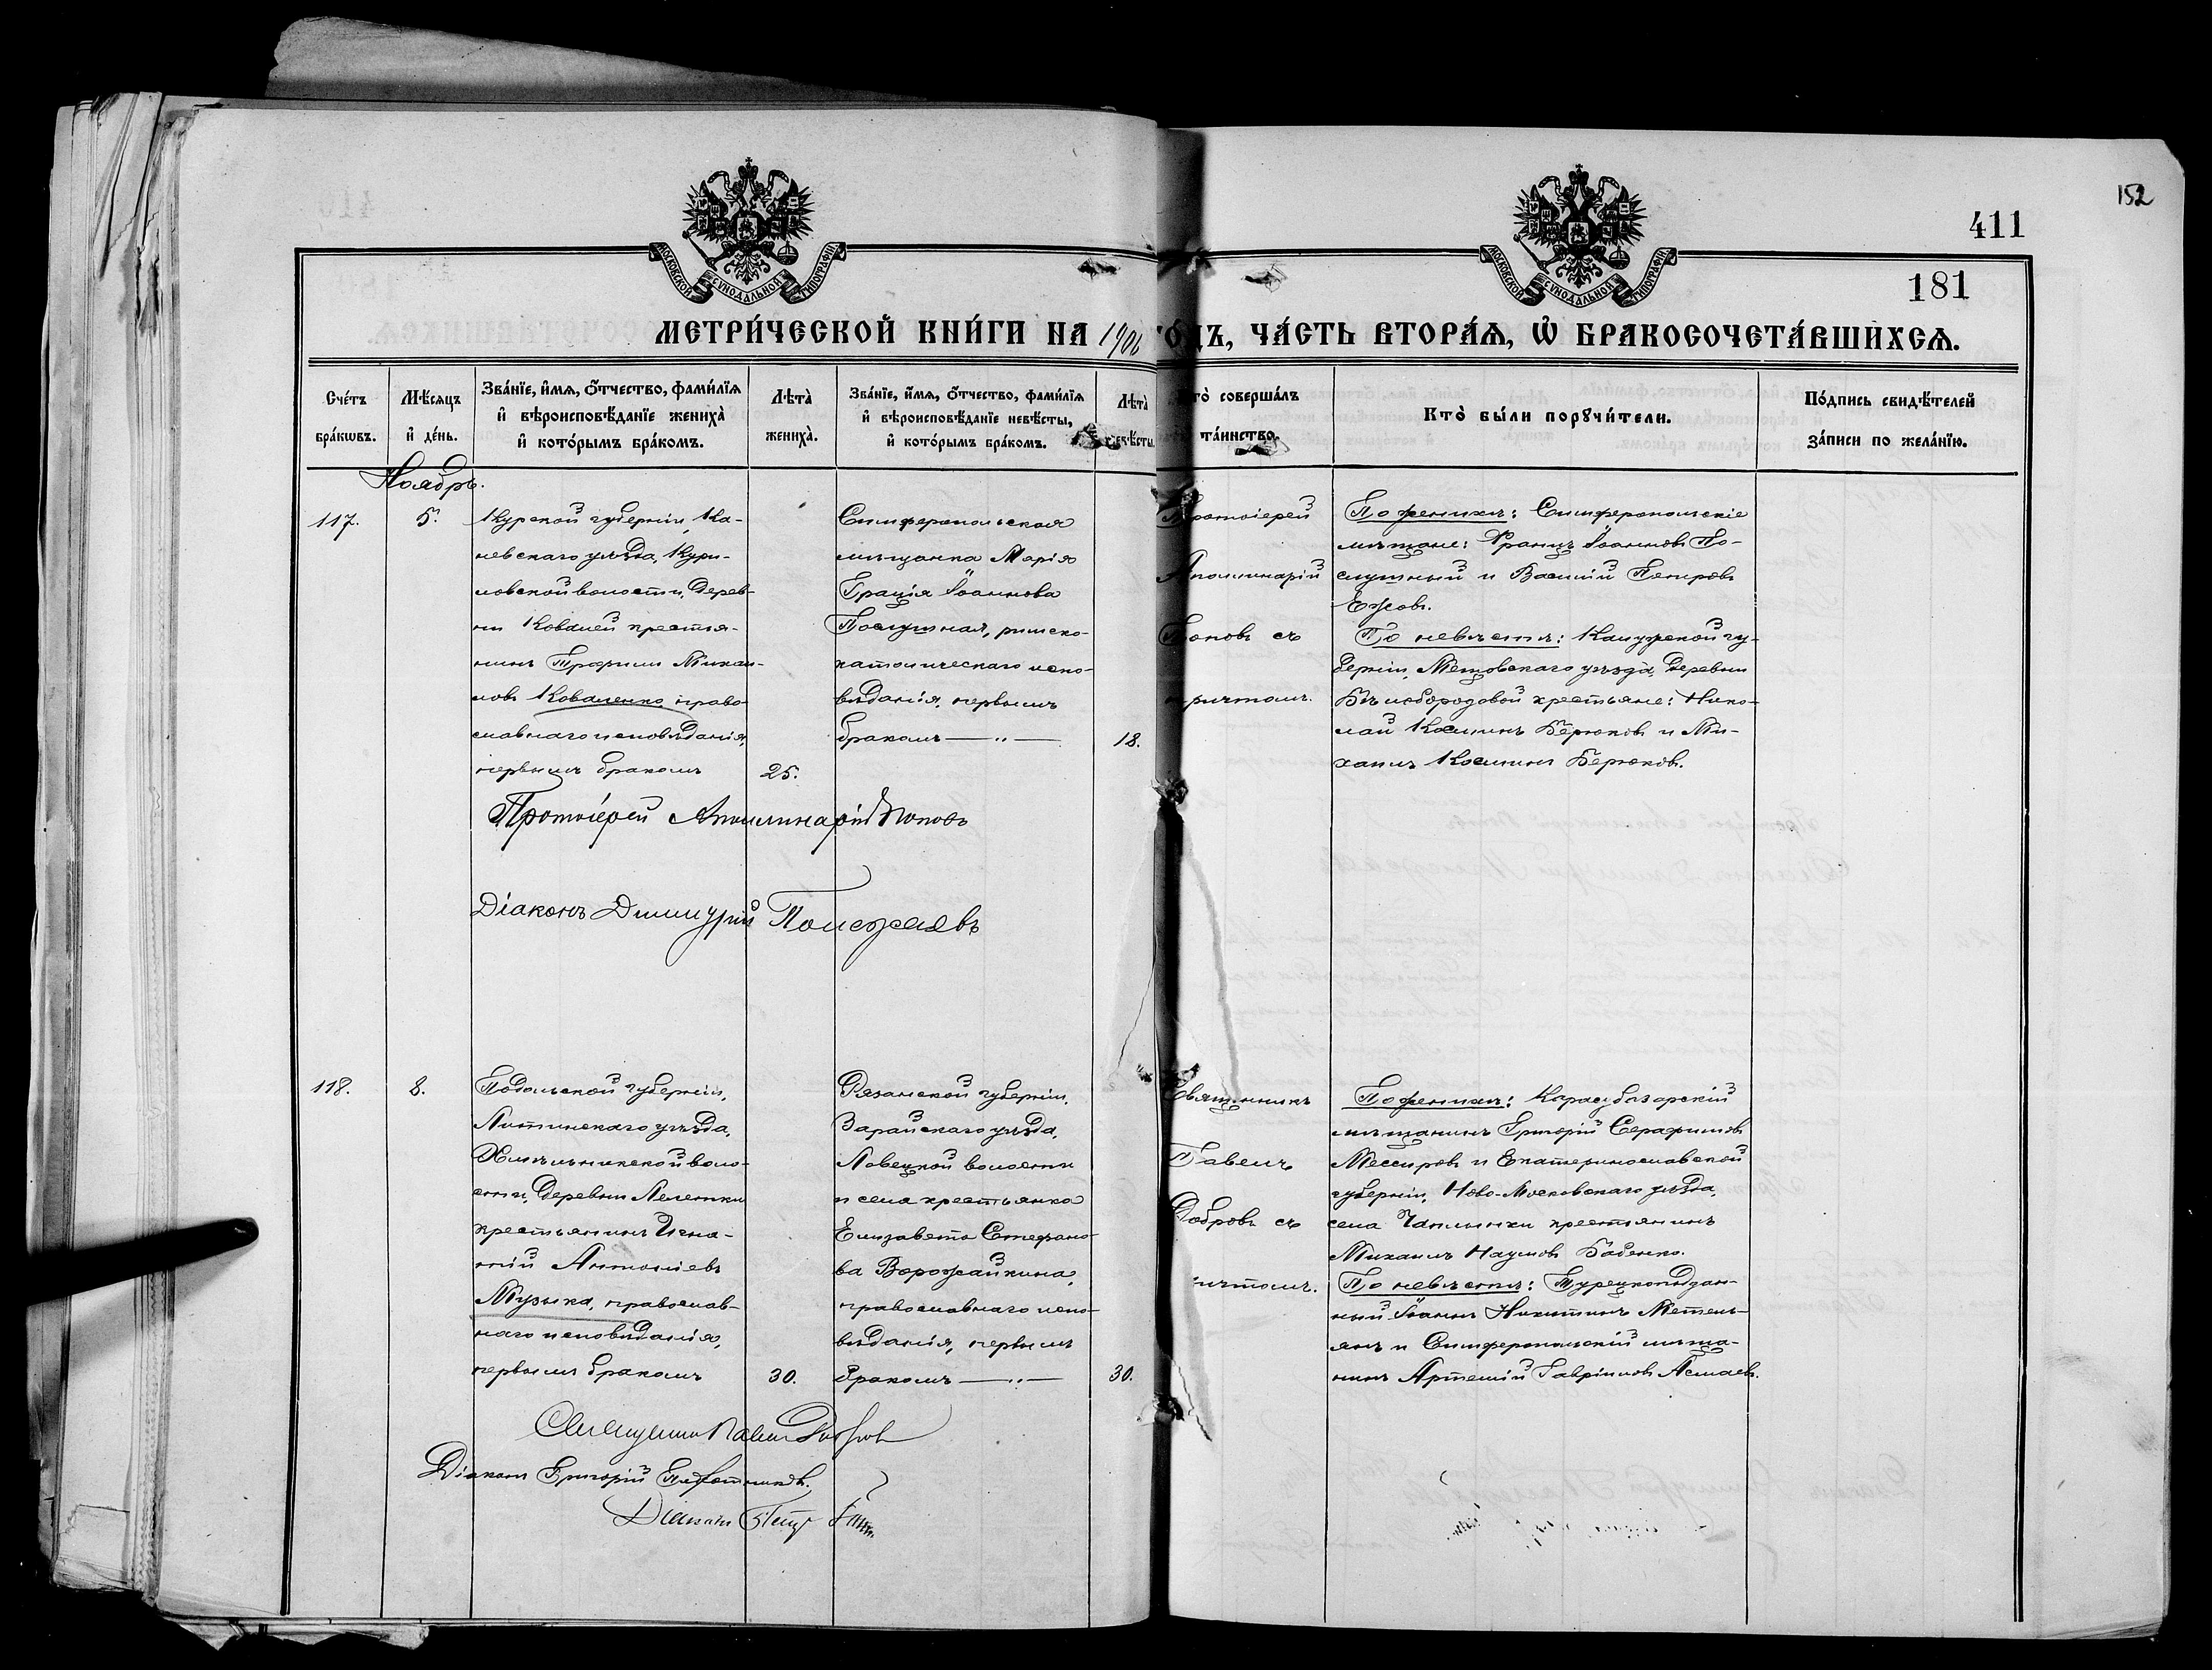 152
411
181
МОСКОВСКОЙ СѴНОДАЛЬНОЙ ТИПОГРАФІИ
МОСКОВСКОЙ СѴНОДАЛЬНОЙ ТИПОГРАФІИ
МЕТРИ́ЧЕСКОЙ КНИ́ГИ НА 1906 ГО́ДЪ, ЧА́СТЬ ВТОРА́Я, Ѡ҆ БРАКОСОЧЕТА́ВШИХСѦ.
Сче́тъ
бра́кѡвъ.
Мѣ́сяцъ
и҆ де́нь.
Зва́нїе, и҆́мя, о҆́тчество, фами́лїя
и҆ вѣроисповѣ́данїе жениха̀
и҆ кото́рымъ бра́комъ.
Лѣта̀
жениха̀.
Зва́нїе, и҆́мя, о҆́тчество, фами́лїя
и҆ вѣроисповѣ́данїе невѣ́сты,
и҆ кото́рымъ бра́комъ.
Лѣта̀
невѣ́сты.
Кто̀ соверша́лъ
та́инство.
Кто̀ бы́ли порꙋчи́тели.
По́дпись свидѣ́телей
за́писи по жела́нїю.
Ноябрь.
117.
5.
Курской губерніи, Ка-
невскаго уѣзда, Кури-
ловской волости, дерев-
ни Ковалей крестья-
нинъ Трофимъ Михаи-
ловъ Коваленко, право-
славнаго исповѣданія,
первымъ бракомъ
25.
Симферопольская
мѣщанка Марія
Грація Іоаннова
Послушная, римско-
католическаго испо-
вѣданія, первымъ
бракомъ — „ —
18.
Протоіерей
Аполлинарій
Поповъ съ
причтомъ.
По женихѣ: Симферопольскіе
мѣщане: Францъ Іоанновъ По-
слушный и Василій Петровъ
Ежовъ.
По невѣстѣ: Калужской гу-
берніи, Мещовскаго уѣзда, деревни
Бѣлобородовой крестьяне: Нико-
лай Космин Берюковъ и Ми-
хаилъ Космин Берюковъ.
Протоіерей Аполлинарій Поповъ
Діаконъ Димитрій Полежаевъ
118.
8.
Подольской губерніи,
Литинскаго уѣзда,
Хмѣльникской воло-
сти, деревни Лелитки
крестьянинъ Игна-
тій Антоніевъ
Музыка, православ-
наго исповѣданія,
первымъ бракомъ
30.
Рязанской губерніи,
Зарайскаго уѣзда,
Ловецкой волости
и села крестьянка
Елизавета Стефано-
ва Ворожайкина,
православнаго испо-
вѣданія, первымъ
бракомъ — „ —
30.
Священникъ
Павелъ
Добровъ съ
причтомъ.
По женихѣ: Карасубазарскій
мѣщанинъ Григорій Серафимовъ
Мессировъ и Екатеринославской
губерніи, Ново-Московскаго уѣзда,
села Чаплинки крестьянинъ
Михаилъ Наумовъ Бабенко.
По невѣстѣ: Турецкоподдан-
ный Іоаннъ Никитинъ Метель-
янъ и Симферопольскій мѣща-
нинъ Артемій Гавріиловъ Асмаевъ.
Священникъ Павелъ Добровъ
Діаконъ Григорій
Діаконъ Петръ